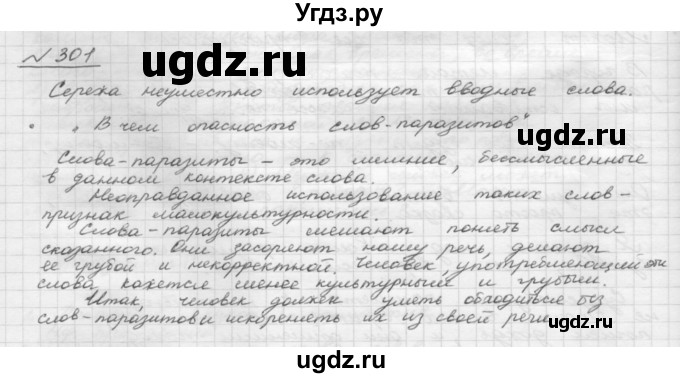 Угдз.ру
№ 301
ugdz.ru
Сережа неуместно использует вводные слова.
„В чем опасность слов-паразитов"
ugdz.ru
Слова-паразиты – это лишние, бессмысленные
в данном контексте слова.
Неоправданное использование таких слов –
признак малокультурности.
Слова-паразиты мешают понять смысл
сказанного. Они засоряют нашу речь, делают
ее грубой и некорректной. Человек, употребляющий эти
слова кажется менее культурным и грубым.
Итак, человек должен уметь обходиться без
слов-паразитов и искоренять их из своей речи
ugdz.ru
ugdz.ru